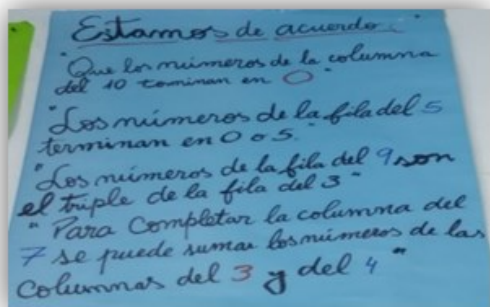 Estamos de acuerdo:
"Que los números de la columna
del 10 terminan en 0"
"Los números de la fila del 5
terminan en 0 o 5."
"Los números de la fila del 9 son
el triple de la fila del 3"
"Para completar la columna del
7 se puede sumar los números de las
columnas del 3 y del 4"